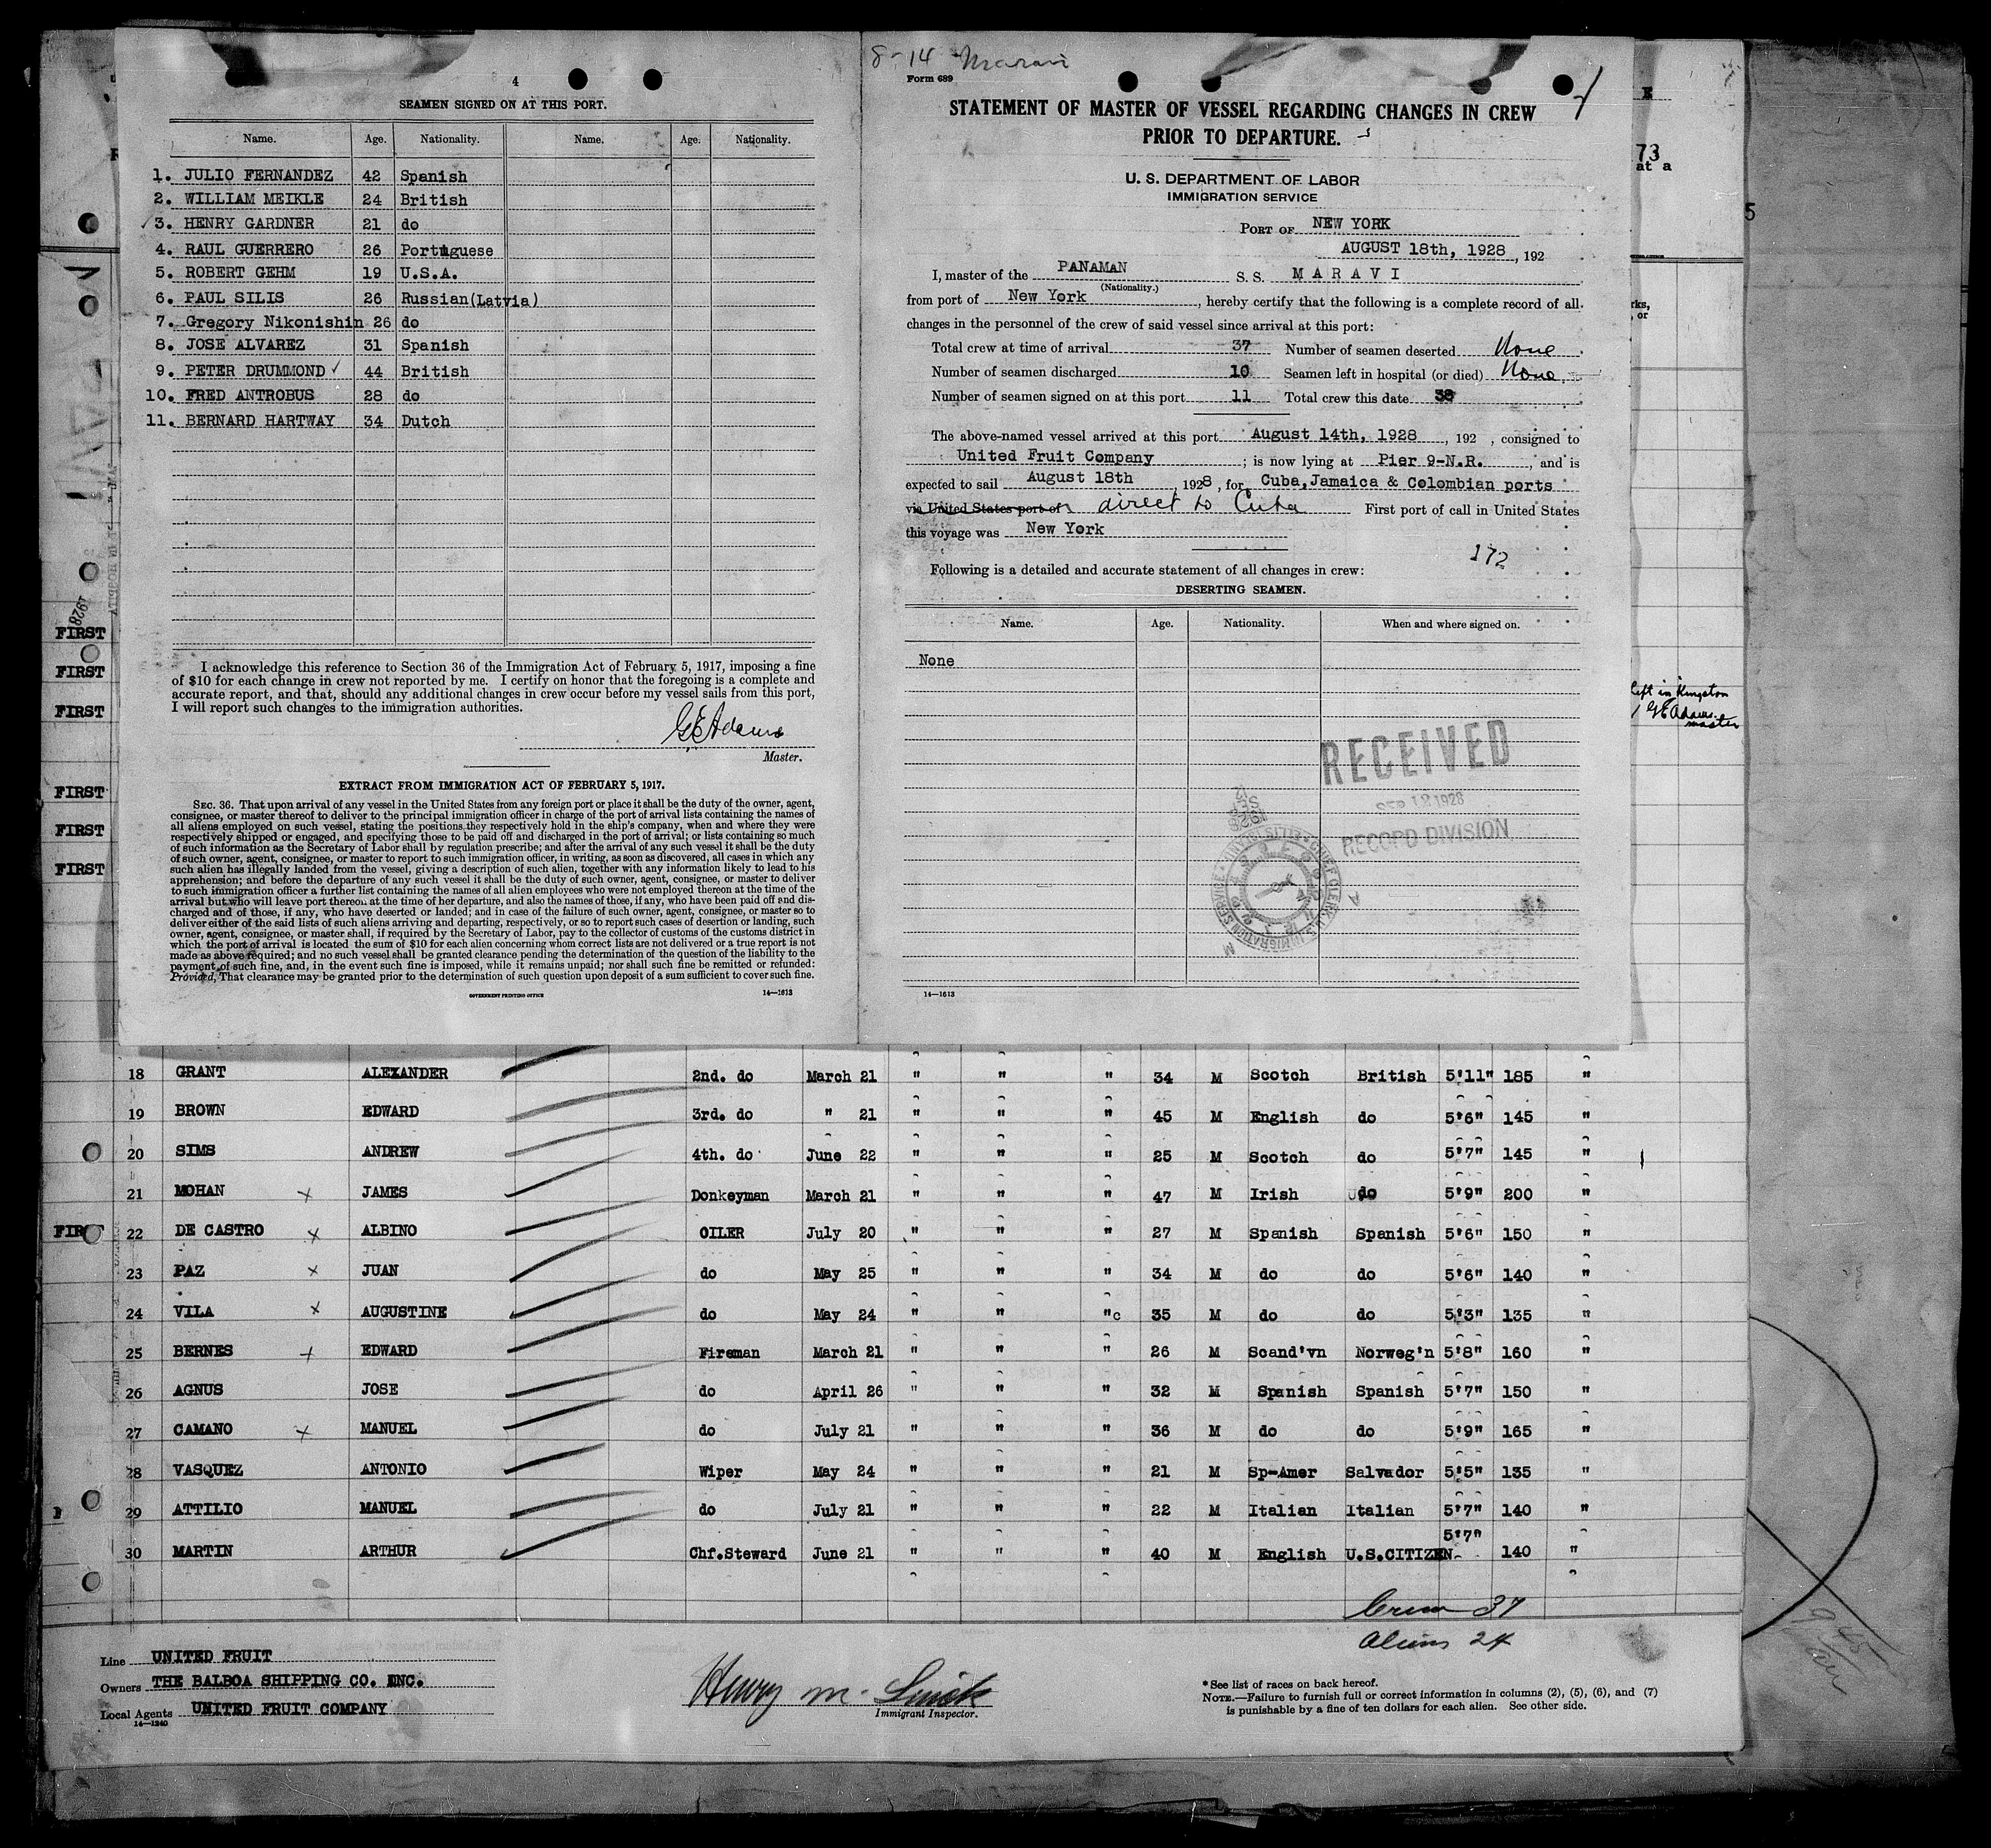 4
SEAMEN SIGNED ON AT THIS PORT.
Name. Age. Nationality. Name. Age. Nationality.
1. JULIO FERNANDEZ 42 Spanish
2. WILLIAM MEIKLE 24 British
3. HENRY GARDNER 21 do
4. RAUL GUERRERO 26 Portuguese
5. ROBERT GEHM 19 U.S.A.
6. PAUL SILIS 26 Russian(Latvia)
7. Gregory Nikonishin 26 do
8. JOSE ALVAREZ 31 Spanish
9. PETER DRUMMOND ✓ 44 British
10. FRED ANTROBUS 28 do
11. BERNARD HARTWAY 34 Dutch
I acknowledge this reference to Section 36 of the Immigration Act of February 5, 1917, imposing a fine
of $10 for each change in crew not reported by me. I certify on honor that the foregoing is a complete and
accurate report, and that, should any additional changes in crew occur before my vessel sails from this port,
I will report such changes to the immigration authorities.
G E Adams
Master.
EXTRACT FROM IMMIGRATION ACT OF FEBRUARY 5, 1917.
SEC. 36. That upon arrival of any vessel in the United States from any foreign port or place it shall be the duty of the owner, agent,
consignee, or master thereof to deliver to the principal immigration officer in charge of the port of arrival lists containing the names of
all aliens employed on such vessel, stating the positions they respectively hold in the ship's company, when and where they were
respectively shipped or engaged, and specifying those to be paid off and discharged in the port of arrival; or lists containing so much
of such information as the Secretary of Labor shall by regulation prescribe; and after the arrival of any such vessel it shall be the duty
of such owner, agent, consignee, or master to report to such immigration officer, in writing, as soon as discovered, all cases in which any
such alien has illegally landed from the vessel, giving a description of such alien, together with any information likely to lead to his
apprehension; and before the departure of any such vessel it shall be the duty of such owner, agent, consignee, or master to deliver
to such immigration officer a further list containing the names of all alien employees who were not employed thereon at the time of the
arrival but who will leave port thereon at the time of her departure, and also the names of those, if any, who have been paid off and dis-
charged and of those, if any, who have deserted or landed; and in case of the failure of such owner, agent, consignee, or master so to
deliver either of the said lists of such aliens arriving and departing, respectively, or so to report such cases of desertion or landing, such
owner, agent, consignee, or master shall, if required by the Secretary of Labor, pay to the collector of customs of the customs district in
which the port of arrival is located the sum of $10 for each alien concerning whom correct lists are not delivered or a true report is not
made as above required; and no such vessel shall be granted clearance pending the determination of the question of the liability to the
payment of such fine, and, in the event such fine is imposed, while it remains unpaid; nor shall such fine be remitted or refunded:
Provided, That clearance may be granted prior to the determination of such question upon deposit of a sum sufficient to cover such fine.
GOVERNMENT PRINTING OFFICE 14—1613
8-14 Maravi
Form 689
STATEMENT OF MASTER OF VESSEL REGARDING CHANGES IN CREW
PRIOR TO DEPARTURE.
U. S. DEPARTMENT OF LABOR
IMMIGRATION SERVICE
PORT OF NEW YORK
AUGUST 18th, 1928, 192
I, master of the PANAMAN S. S. MARAVI
(Nationality.)
from port of New York, hereby certify that the following is a complete record of all
changes in the personnel of the crew of said vessel since arrival at this port:
Total crew at time of arrival 37 Number of seamen deserted None
Number of seamen discharged 10 Seamen left in hospital (or died) None
Number of seamen signed on at this port 11 Total crew this date 38
The above-named vessel arrived at this port August 14th, 1928, 192 , consigned to
United Fruit Company ; is now lying at Pier 9-N.R. , and is
expected to sail August 18th, 1928, for Cuba, Jamaica & Colombian ports
via United States port of direct to Cuba First port of call in United States
this voyage was New York
172
Following is a detailed and accurate statement of all changes in crew:
DESERTING SEAMEN.
Name. Age. Nationality. When and where signed on.
None
RECEIVED
SEP 12 1928
RECORD DIVISION
14—1613
73
at a
left in Kingston
G E Adams
master
1928
FIRST
FIRST
FIRST
FIRST
FIRST
FIRST
18 GRANT ALEXANDER 2nd. do March 21 " " " 34 M Scotch British 5'11" 185 "
19 BROWN EDWARD 3rd. do " 21 " " " 45 M English do 5'6" 145 "
20 SIMS ANDREW 4th. do June 22 " " " 25 M Scotch do 5'7" 145 "
21 MOHAN x JAMES Donkeyman March 21 " " " 47 M Irish do 5'9" 200 "
FIRST 22 DE CASTRO x ALBINO OILER July 20 " " " 27 M Spanish Spanish 5'6" 150 "
23 PAZ x JUAN do May 25 " " " 34 M do do 5'6" 140 "
24 VILA x AUGUSTINE do May 24 " " "c 35 M do do 5'3" 135 "
25 BERNES x EDWARD Fireman March 21 " " " 26 M Scand'vn Norweg'n 5'8" 160 "
26 AGNUS JOSE do April 26 " " " 32 M Spanish Spanish 5'7" 150 "
27 CAMANO x MANUEL do July 21 " " " 36 M do do 5'9" 165 "
28 VASQUEZ ANTONIO Wiper May 24 " " " 21 M Sp-Amer Salvador 5'5" 135 "
29 ATTILIO MANUEL do July 21 " " " 22 M Italian Italian 5'7" 140 "
30 MARTIN ARTHUR Chf.Steward June 21 " " " 40 M English U.S.CITIZEN 5'7" 140 "
Crew 37
Aliens 24
Line UNITED FRUIT
Owners THE BALBOA SHIPPING CO. INC.
Local Agents UNITED FRUIT COMPANY
14—1240
Immigrant Inspector.
* See list of races on back hereof.
NOTE.—Failure to furnish full or correct information in columns (2), (5), (6), and (7)
is punishable by a fine of ten dollars for each alien. See other side.